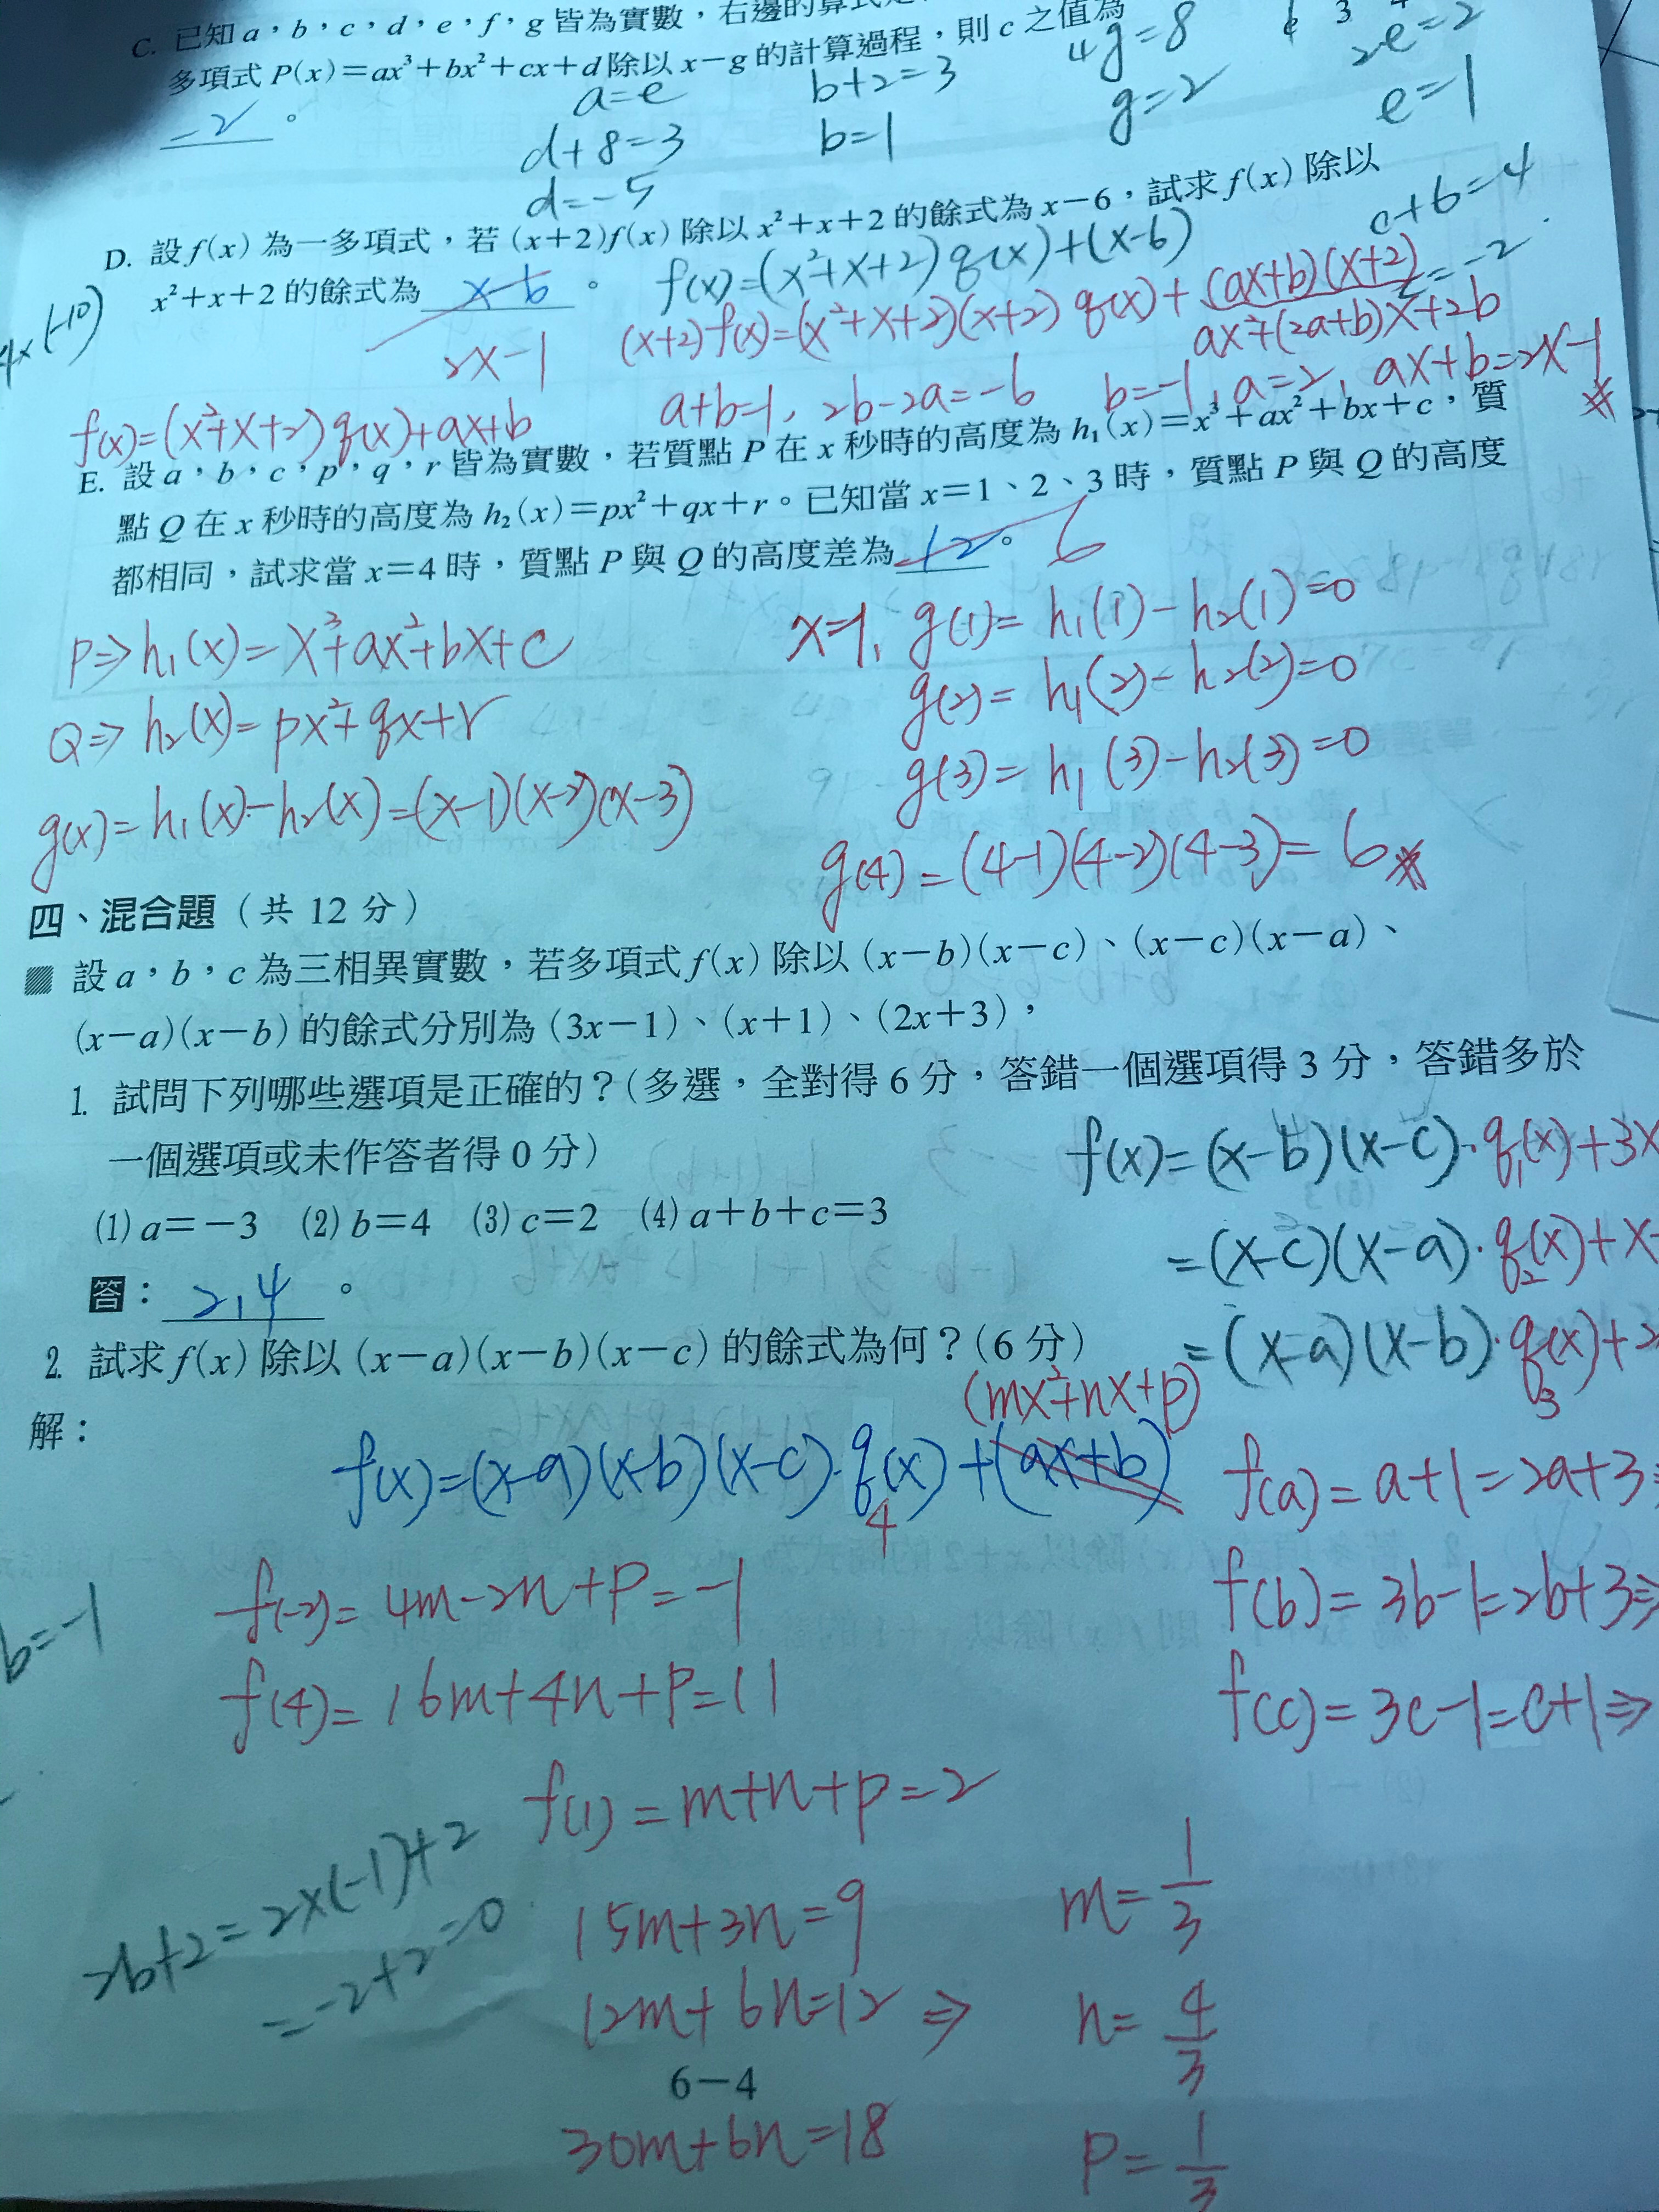 C. 已知 a，b，c，d，e，f，g 皆為實數，右邊的算式
多項式 P(x)＝ax³＋bx²＋cx＋d 除以 x－g 的計算過程，則 c 之值為
－2。
a=e
d+8=3
d=-5
b+2=3
b=1
4g=8
g=2
2e=2
e=1
c+b=4
c=-2
D. 設 f(x) 為一多項式，若 (x＋2)f(x) 除以 x²＋x＋2 的餘式為 x－6，試求 f(x) 除以
x²＋x＋2 的餘式為 x-6。
2x-1
f(x)=(x²+x+2)q(x)+(x-6)
(x+2)f(x)=(x²+x+2)(x+2)q(x)+(ax+b)(x+2)
ax²+(2a+b)x+2b
a+b=1, 2b-2a=-6 b=-1, a=2, ax+b=2x-1
f(x)=(x²+x+2)q(x)+ax+b
4x(-10)
E. 設 a，b，c，p，q，r 皆為實數，若質點 P 在 x 秒時的高度為 h₁(x)＝x³＋ax²＋bx＋c，質
點 Q 在 x 秒時的高度為 h₂(x)＝px²＋qx＋r。已知當 x＝1、2、3 時，質點 P 與 Q 的高度
都相同，試求當 x＝4 時，質點 P 與 Q 的高度差為 12。 6
P⇒h₁(x)=x³+ax²+bx+c
Q⇒h₂(x)=px²+qx+r
g(x)=h₁(x)-h₂(x)=(x-1)(x-2)(x-3)
x=1, g(1)=h₁(1)-h₂(1)=0
g(2)=h₁(2)-h₂(2)=0
g(3)=h₁(3)-h₂(3)=0
g(4)=(4-1)(4-2)(4-3)=6
四、混合題（共 12 分）
設 a，b，c 為三相異實數，若多項式 f(x) 除以 (x－b)(x－c)、(x－c)(x－a)、
(x－a)(x－b) 的餘式分別為 (3x－1)、(x＋1)、(2x＋3)，
1. 試問下列哪些選項是正確的？(多選，全對得 6 分，答錯一個選項得 3 分，答錯多於
一個選項或未作答者得 0 分)
(1) a＝－3 (2) b＝4 (3) c＝2 (4) a＋b＋c＝3
答：2,4。
f(x)=(x-b)(x-c)·q₁(x)+3x
=(x-c)(x-a)·q₂(x)+x-
=(x-a)(x-b)·q₃(x)+2
2. 試求 f(x) 除以 (x－a)(x－b)(x－c) 的餘式為何？(6 分)
解：
(mx²+nx+p)
f(x)=(x-a)(x-b)(x-c)·q₄(x)+(ax+b)
f(a)=a+1=2a+3
f(b)=3b-1=2b+3⇒
f(c)=3c-1=c+1⇒
f(-2)=4m-2n+p=-1
f(4)=16m+4n+p=11
f(1)=m+n+p=2
b=-1
2b+2=2x(-1)+2
=-2+2=0
15m+3n=9
12m+6n=12 ⇒
30m+6n=18
m=1/3
n=4/3
p=1/3
6－4